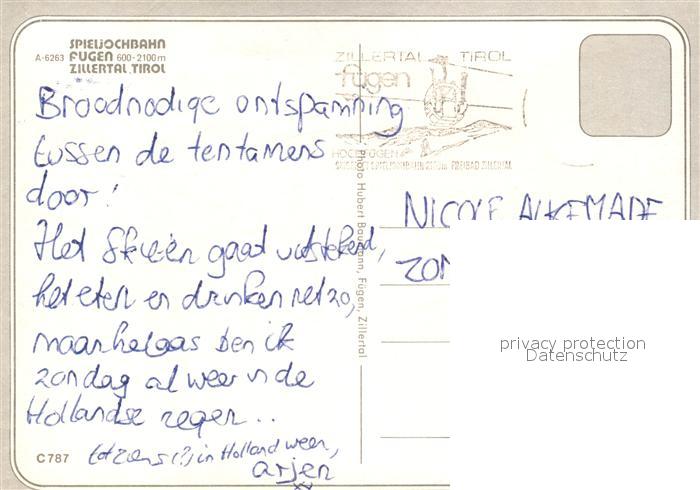 SPIELJOCHBAHN
A-6263 FÜGEN 600-2100m
ZILLERTAL TIROL
ZILLERTAL TIROL
fügen
HOCHFÜGEN
FREIBAD ZILLERTAL
Broodnodige ontspanning
tussen de tentamens
door!
Het skieën gaat uitstekend,
het eten en drinken net zo,
maar helaas ben ik
zondag al weer in de
Hollandse regen..
tot ziens (?) in Holland weer,
arjen
NICOLE ALKEMADE
ZO
Photo Hubert Baumann, Fügen, Zillertal
C787
privacy protection
Datenschutz